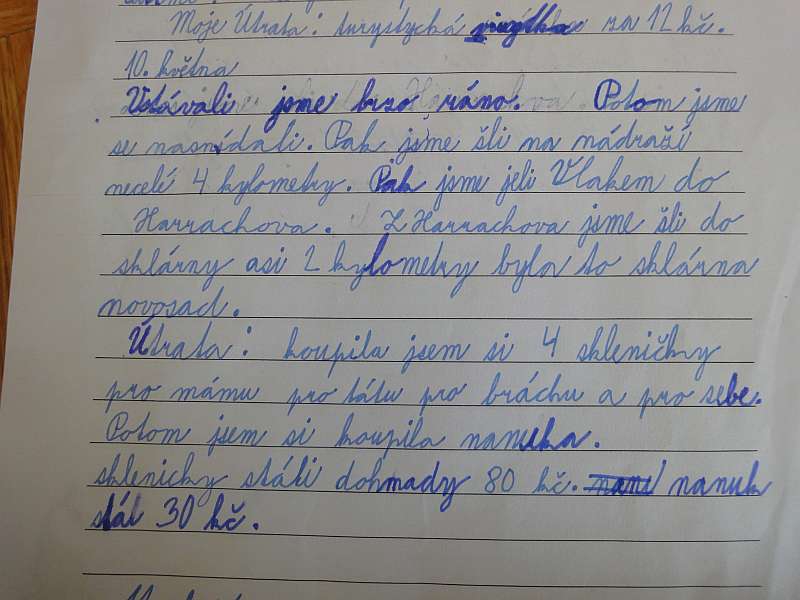 Moje Útrata: turystycká vizytka za 12 kč.
10. května
Vstávali jsme brzo ráno. Potom jsme
se nasnídali. Pak jsme šli na nádraží
necelí 4 kylometry. Pak jsme jeli Vlakem do
Harrachova. Z Harrachova jsme šli do
sklárny asi 2 kylometry byla to sklárna
novosad.
Útrata: koupila jsem si 4 skleničky
pro mámu pro tátu pro bráchu a pro sebe.
Potom jsem si koupila nanuka.
sklenicky stáli dohmady 80 kč. nanuk
stál 30 kč.